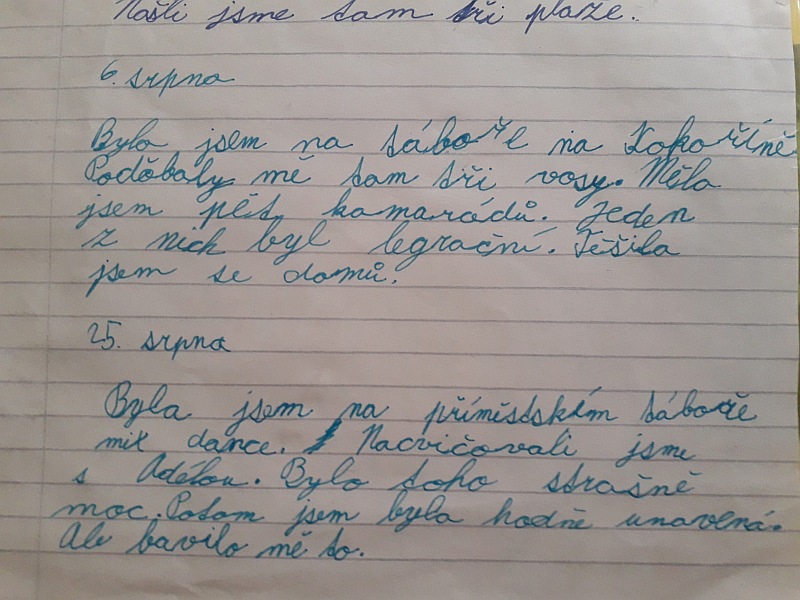 Našli jsme tam tři pláže.
6. srpna
Byla jsem na táboře na Kokoříně
Poděbaly mě tam tři vosy. Měla
jsem pět kamarádů. Jeden
z nich byl legrační. Těšila
jsem se domů.
25. srpna
Byla jsem na příměstském táboře
mix dance. Nacvičovali jsme
s Adélou. Bylo toho strašně
moc. Potom jsem byla hodně unavená.
Ale bavilo mě to.